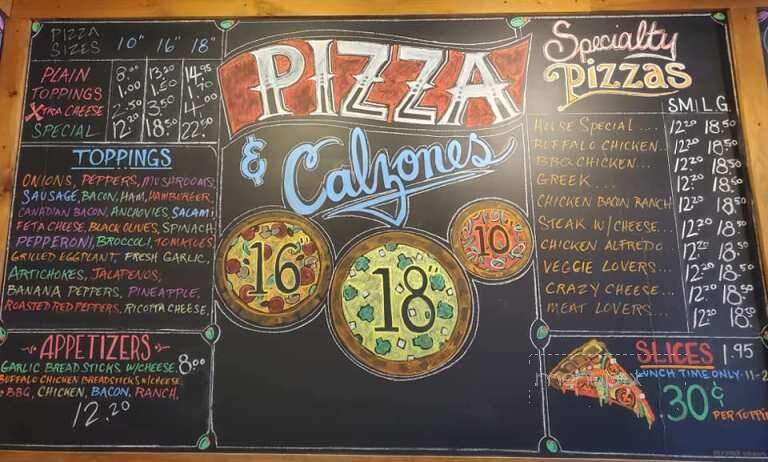 PIZZA SIZES 10" 16" 18"
PLAIN 8.00 13.20 14.95
TOPPINGS 1.00 1.50 1.70
XTRA CHEESE 2.50 3.50 4.00
SPECIAL 12.20 18.50 22.50
TOPPINGS
ONIONS, PEPPERS, MUSHROOMS,
SAUSAGE, BACON, HAM, HAMBURGER,
CANADIAN BACON, ANCHOVIES, SALAMI
FETA CHEESE, BLACK OLIVES, SPINACH
PEPPERONI, BROCCOLI, TOMATOES
GRILLED EGGPLANT, FRESH GARLIC,
ARTICHOKES, JALAPENOS,
BANANA PEPPERS, PINEAPPLE,
ROASTED RED PEPPERS, RICOTTA CHEESE,
APPETIZERS
GARLIC BREADSTICKS W/CHEESE 8.00
BUFFALO CHICKEN BREADSTICKS W/CHEESE
BBQ, CHICKEN, BACON, RANCH.
12.20
PIZZA
& Calzones
16"
18"
10"
Specialty
Pizzas
SM L.G.
HOUSE SPECIAL... 12.20 18.50
BUFFALO CHICKEN.. 12.20 18.50
BBQ CHICKEN... 12.20 18.50
GREEK... 12.20 18.50
CHICKEN BACON RANCH 12.20 18.50
STEAK W/CHEESE... 12.20 18.50
CHICKEN ALFREDO 12.20 18.50
VEGGIE LOVERS... 12.20 18.50
CRAZY CHEESE... 12.20 18.50
MEAT LOVERS... 12.20 18.50
SLICES 1.95
LUNCH TIME ONLY 11-2
.30¢ PER TOPPIN